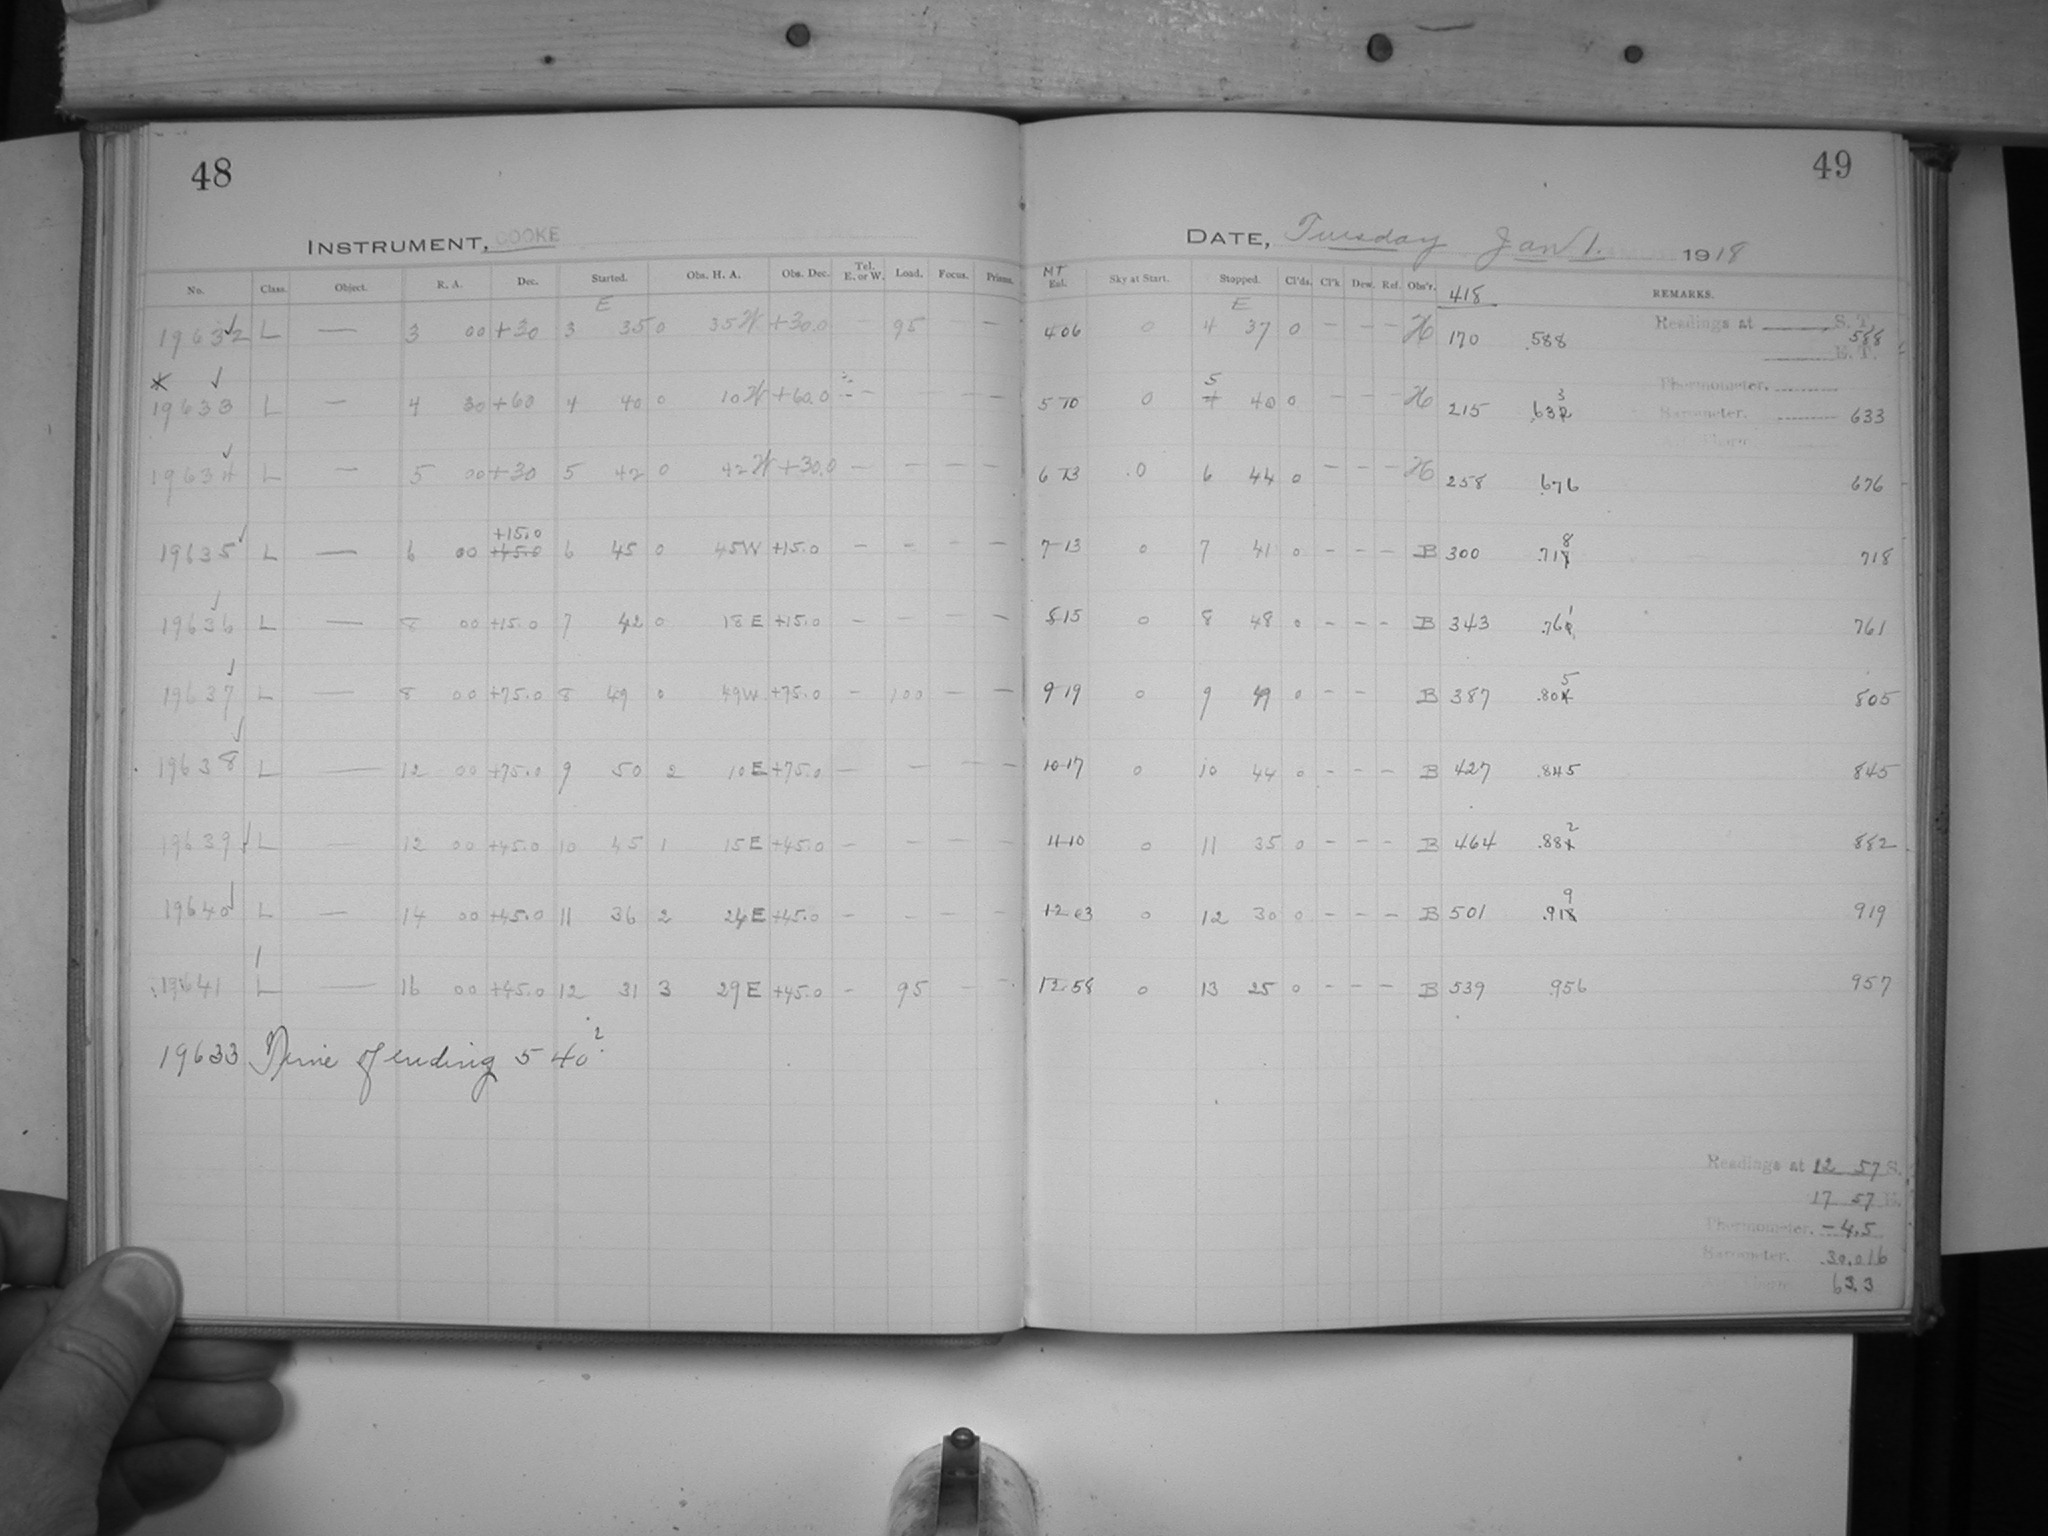 48
INSTRUMENT, COOKE
No. Class. Object. R. A. Dec. Started. Obs. H. A. Obs. Dec. Tel. E. or W. Load. Focus. Prisms.
E
19632 L — 3 00 +30 3 35 0 35 W +30.0 — 95 —
19633 L — 4 30 +60 4 40 0 10 W +60.0 — — — —
19634 L — 5 00 +30 5 42 0 42 W +30.0 — — — —
+15.0
19635 L — 6 00 +45.0 6 45 0 45 W +15.0 — — — —
19636 L — 8 00 +15.0 7 42 0 18 E +15.0 — — — —
19637 L — 8 00 +75.0 8 49 0 49 W +75.0 — 100 — —
19638 L — 12 00 +75.0 9 50 2 10 E +75.0 — — — —
19639 L — 12 00 +45.0 10 45 1 15 E +45.0 — — — —
19640 L — 14 00 +45.0 11 36 2 24 E +45.0 — — — —
19641 L — 16 00 +45.0 12 31 3 29 E +45.0 — 95 — —
19633 Time of ending 5 40
49
DATE, Tuesday Jan 1. 1918
MT
Sky at Start. Stopped. Cl'ds. Cl'k Dew. Ref. Obs'r. 418 REMARKS.
E
406 0 4 37 0 — — — H 170 .588 Readings at S. T. 588
E. T.
Thermometer.
5 3
5 10 0 4 40 0 — — — H 215 .632 Barometer. 633
6 13 .0 6 44 0 — — — H 258 .676 676
8
7 13 0 7 41 0 — — — B 300 .717 718
1
8 15 0 8 48 0 — — — B 343 .76 761
5
9 19 0 9 49 0 — — B 387 .804 805
10 17 0 10 44 0 — — — B 427 .845 845
2
11 10 0 11 35 0 — — — B 464 .881 882
9
12 03 0 12 30 0 — — — B 501 .918 919
12.58 0 13 25 0 — — — B 539 .956 957
Readings at 12 57 S.
17 57 E.
Thermometer. -4.5
Barometer. 30.016
63.3